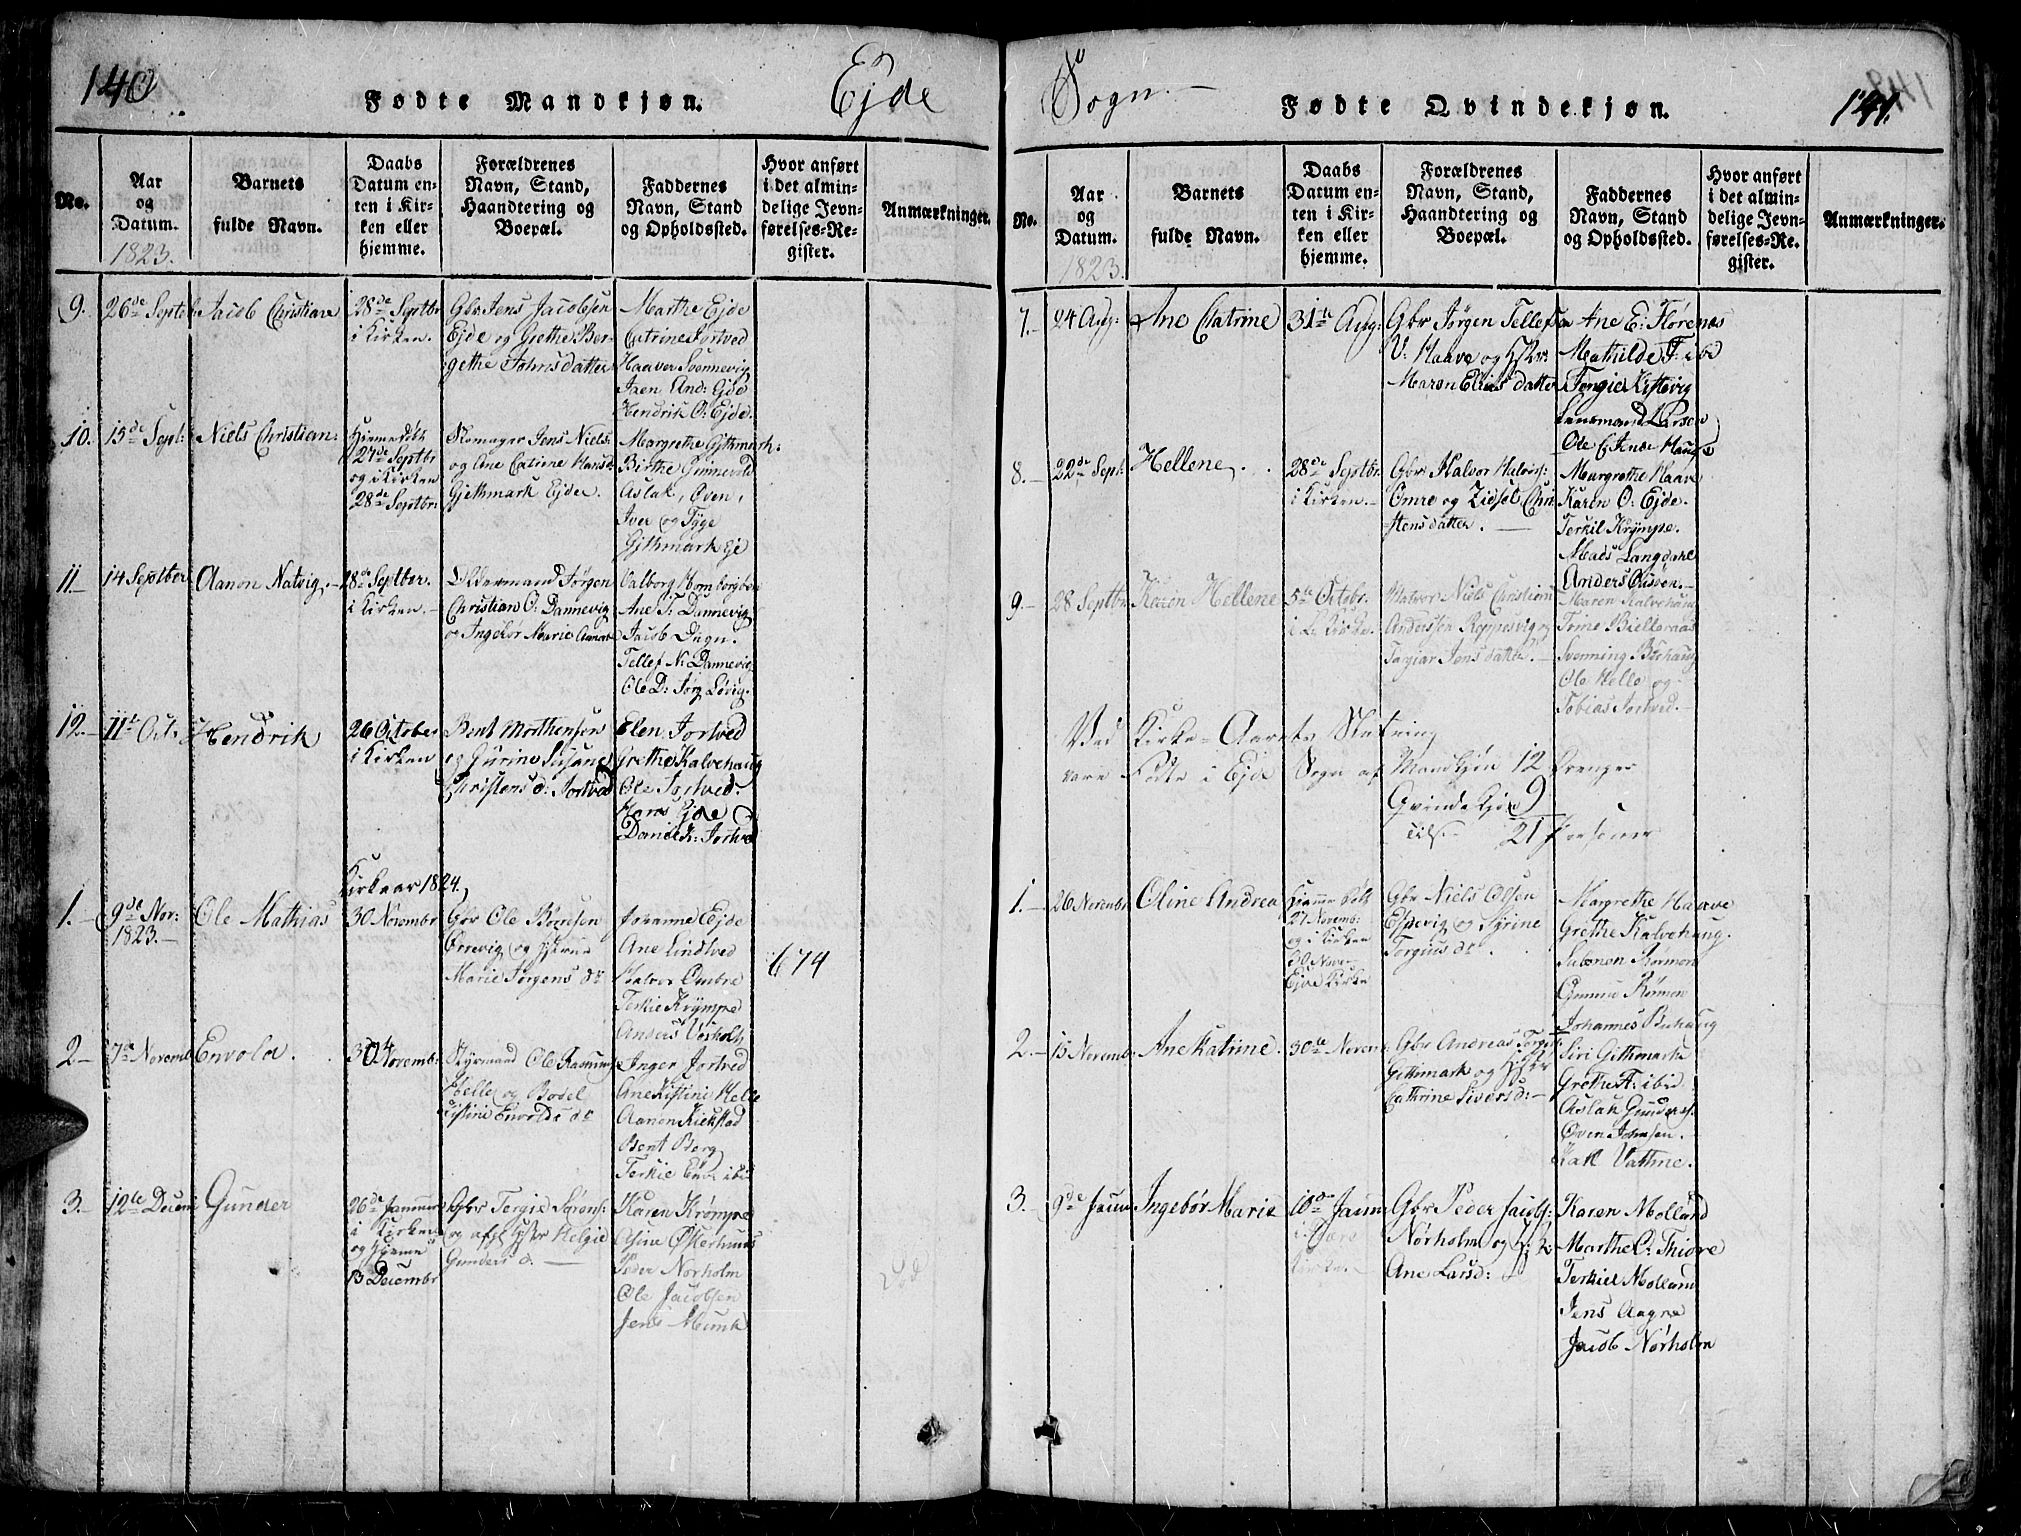 140
Fødte Mandkjøn.
Ejde
No.
Aar
og
Datum.
1823.
Barnets
fulde Navn.
Daabs
Datum en-
ten i Kir-
ken eller
hjemme.
Forældrenes
Navn, Stand,
Haandtering og
Boepæl.
Faddernes
Navn, Stand
og Opholdssted.
Hvor anført
i det almin-
delige Jevn-
førelses-Re-
gister.
Anmærkninger.
9. 26de Septb
Jacob Christian
28de Septbr
i Kirken.
Gbr Jens Jacobsen
Ejde og Grethe Ber-
gethe Johnsdatter
Marthe Ejde
Catrine Jortved
Haaver Svennevig
Jaen And: Ejde
Hendrik O: Ejde.
10. 15de Sept:
Niels Christian.
Hjemmedøbt
27de Septbr
og i Kirken
28de Septbr:
Skomager Jens Niels:
og Ane Catrine Hansd
Gjethmark Ejde.
Margrethe Gjthmark:
Birthe Gunnevold
Aslak, Oven,
Iver og Tyge
Gjthmark Eje
11. 14 Septber
Aanon Natvig.
28de Septber.
i Kirken.
Christian O: Dannevig
og Ingebør Marie
Valborg Homborg
Ane T: Dannevig
Jacob Dugn.
Tellef N: Dannevig
Ole D:
12. 11te Oct:
Hendrik
26 October
i Kirken
Bent Morthensen
og Gurine Susane
Christens d: Jortved
Elen Jortved
Grethe Kalvehaug
Ole Jortved.
Hans Ejde
Daniel K: Jortved
Kirkeaar 1824.
1. 9de Nor:
1823.
Ole Mathias
30 Novembr
Gbr Ole Børresen
Ørrevig og Hstrue
Marie Jørgens dr
Johanne Ejde
Ane Lindtved
Halvor Ombre
Terkie Krympe
Anders Vesholt
674
2 7de Novemb
Envold.
30 Novemb:
Styrmand Ole Rasmus
Helle og Bodel
Kistine Envolds dr
Inger Jortved
Ane Kistine Helle
Aanon Kiekstad
Bent Berg
Terkie
3. 12te Decem
Gunder
26de Januar
i Kirken
og hjeme
13 Decembr
Gbr Tergie Sørens:
og Hstr Helgie
Gunders d.
Karen Krømpe
Peder Nørholm
Ole Jacobsen
Jens Munk
Sogn.
Fødte Qvindekjøn.
141.
No.
Aar
og
Datum.
1823.
Barnets
fulde Navn.
Daabs
Datum en-
ten i Kir-
ken eller
hjemme.
Forældrenes
Navn, Stand,
Haandtering og
Boepæl.
Faddernes
Navn, Stand
og Opholdssted.
Hvor anført
i det almin-
delige Jevn-
førelses-Re-
gister.
Anmærkninger.
7. 24 Aug:
Ane Catrine
31te Aug:
Gbr Jørgen Tellefsen
V: Haave og Hstr:
Maren Elias datter
Ane E: Florenæs
Mathilde F: ibd
Tengiel Kistevig
Lensmand Larsen
Ole E: Inde Hauge
8. 22de Sept:
Hellene.
28de Septbr.
i Kirken.
Gbr Halvor Halvors:
Omre og Zidsel Chri
stensdatter.
Margrethe Haave
Karen O: Ejde.
Terkil Krympe.
Mads Langdane
Anders Olsøen.
9. 28 Septbr
Karen Hellene
5te Octobr.
Matros Niels Christian
Anderssen Reppesvig og
Targiar Jens datter.
Maren Kalvehaug
Trine Bielleraas
Svenning Buehaug
Ole Helle og
Tobias Jortved.
Ved Kirke-Aarets Slutning
vare Fødte i Ejde Sogn af Mandkjøn 12 Drenger
Qvindekjøn 9
Tils. 21 Personer
1. 26 Novembr
Oline Andrea
Hjemme døbt
27 Novemb:
og i Kirken
30 Novbr
Ejde Kirke
Gbr Niels Olsen
Espevig og Syrine
Torguus dr.
Margrethe Haave
Grethe Kalvehaug.
Salomon Rømen
Gunne Rømen
Johannes Buhaug
2. 15 Novemb:
Ane Katrine.
30te Novem:
Gbr Andreas Torgie
Githmark og Hstr
Cathrine Sivers d:
Siri Githmark
Grethe A: ibid
Aslak Gunders:
Øven Johnsen.
Kall Vathne.
3. 9de Janu
Ingebør Marie
10de Janu
i Fjære
Kirke.
Gbr Peder Jacobs:
Nørholm og Hstr
Ane Larsd:
Karen Molland
Marthe C: Thiøre
Terkiel Molland
Jens Aagre
Jacob Nørholm